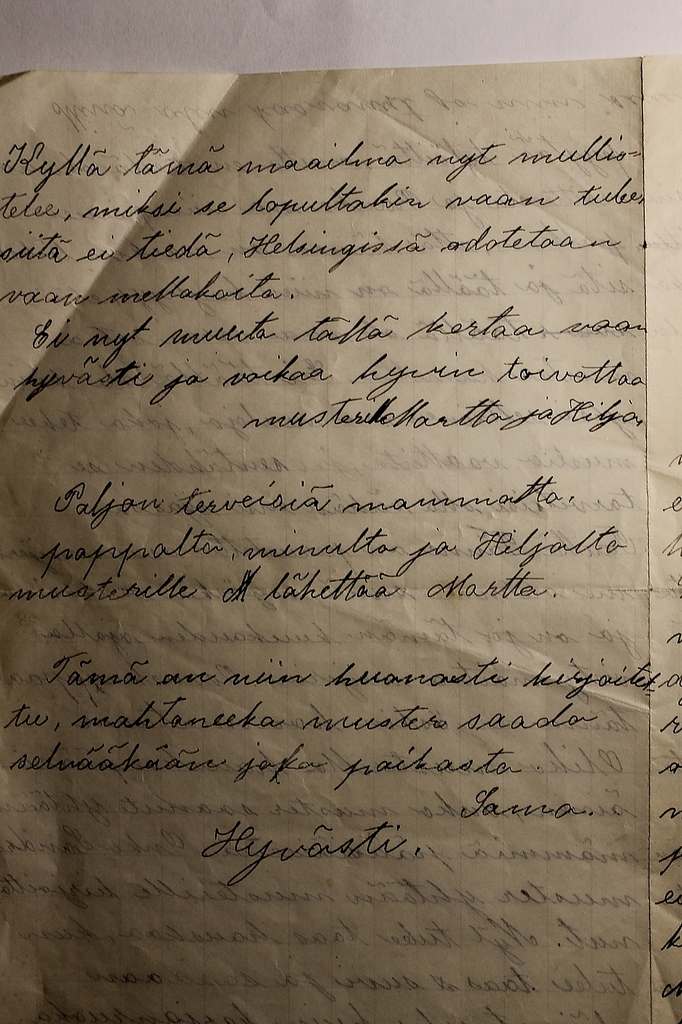 Kyllä tämä maailma nyt mullis-
telee, miksi se lopultakin vaan tulee
siitä ei tiedä, Helsingissä odotetaan
vaan mellakoita.
Ei nyt muuta tällä kertaa vaan
hyvästi ja voikaa hyvin toivottaa
musteril Martta ja Hilja.
Paljon terveisiä mammalta.
pappalta, minulta ja Hiljalta
musterille lähettää Martta.
Tämä on niin huonosti kirjoitet-
tu, mahtaneeka muster saada
selvääkään joka paikasta.
Sama.
Hyvästi.